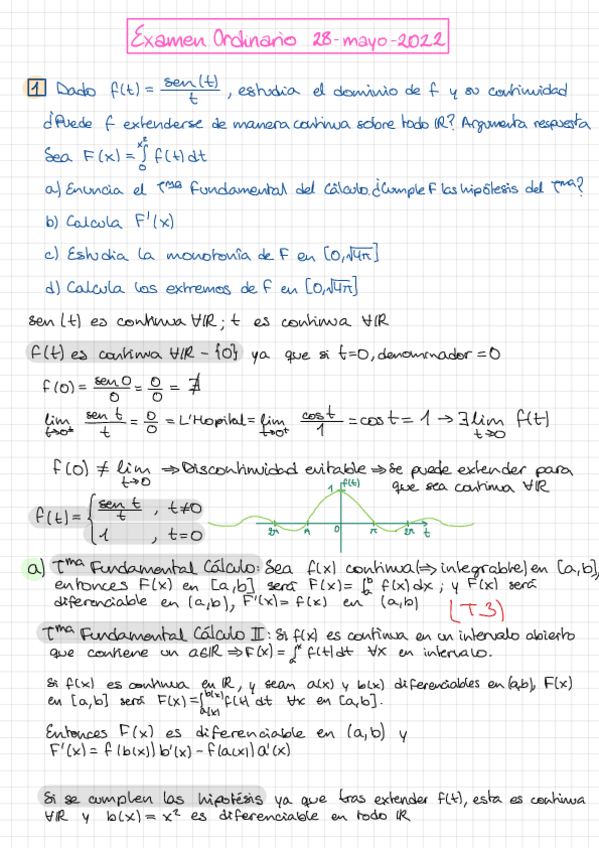 Examen Ordinario 28-mayo-2022
1 Dado f(t) = sen(t)/t, estudia el dominio de f y su continuidad
¿Puede f extenderse de manera continua sobre todo ℝ? Argumenta respuesta
Sea F(x) = ∫₀^x² f(t)dt
a) Enuncia el Tma Fundamental del Cálculo. ¿Cumple F las hipótesis del Tma?
b) Calcula F'(x)
c) Estudia la monotonía de F en [0,√4π]
d) Calcula los extremos de F en [0,√4π]
sen(t) es continua ∀ℝ; t es continua ∀ℝ
f(t) es continua ∀ℝ - {0} ya que si t=0, denominador = 0
f(0) = sen 0/0 = 0/0 = ∄
lim t→0± sen t/t = 0/0 = L'Hopital = lim t→0± cos t/1 = cos t = 1 → ∃ lim t→0 f(t)
f(0) ≠ lim t→0 ⇒ Discontinuidad evitable ⇒ Se puede extender para
que sea continua ∀ℝ
f(t) = { sen t/t , t≠0
1 , t=0
1 f(t)
2π π 0 π 2π t
a) Tma Fundamental Cálculo: Sea f(x) continua (⇒ integrable) en [a,b],
entonces F(x) en [a,b] será F(x) = ∫ₐᵇ f(x)dx ; y F(x) será
diferenciable en (a,b), F'(x) = f(x) en (a,b)
(T3)
Tma Fundamental Cálculo II: Si f(x) es continua en un intervalo abierto
que contiene un a∈ℝ ⇒ F(x) = ∫ₐˣ f(t)dt ∀x en intervalo.
Si f(x) es continua en ℝ, y sean a(x) y b(x) diferenciables en (a,b), F(x)
en [a,b] será F(x) = ∫a(x)^b(x) f(x) dt ∀x en [a,b].
Entonces F(x) es diferenciable en (a,b) y
F'(x) = f(b(x)) b'(x) - f(a(x)) a'(x)
Si se cumplen las hipotésis ya que tras extender f(t), esta es continua
∀ℝ y b(x) = x² es diferenciable en todo ℝ